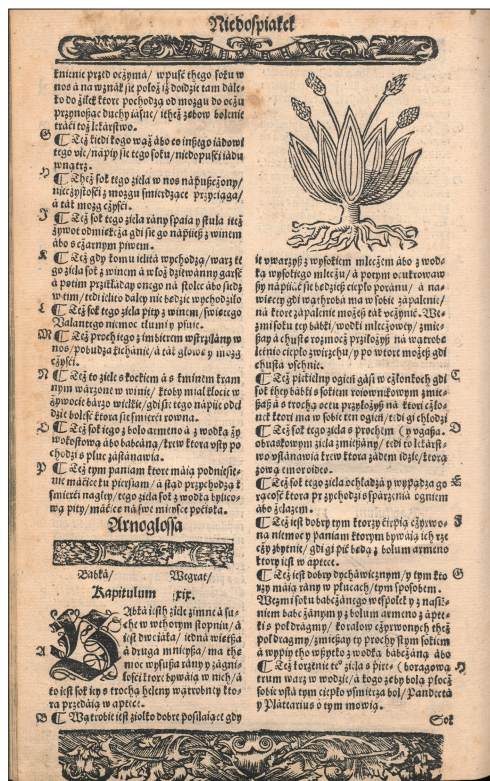 Niedospiałek
knienie przed oczymá/ wpuść thego soku w
nos á na wznák sie położ iż doidzie tam dále-
ko do żiłek ktore pochodzą od mozgu do oczu
przynosząc duchy iásne/ ićheż zębow bolenie
tráći toż lekárstwo.
G ¶ Też kiedi kogo wąż ábo co inszego iádowi
tego vie/ nápiy sie tego soku/ niedopuśći iádu
wnątrz.
H ¶ Theż sok tego ziela w nos nápuszczony/
nieczystośći z mozgu śmierdzące przyciąga/
á ták mozg czyśći.
I ¶ Też sok tego ziela rány spaia y stula iteż
żywot odmiękcza gdi sie go nápiieß z winem
ábo s czarnym piwem.
K ¶ Też gdy komu ielitá wychodzą/ warz te
go ziela sok z winem á włoż dziewánny garść
á potim przikłáday onego ná stolec ábo siedz
w tim/ tedi ielito dáley nie będzie wychodziło
L ¶ Też sok tego ziela pity z winem/ swiętego
Wálantego niemoc tłumi y psuie.
M ¶ Też proch iego z imbierem wstrzilány w
nos/ pobudza kichánie/ á ták głowę y mozg
czyśći.
N ¶ Też to ziele s koćkiem á s kminem kram
nym wárzone w winie/ ktoby miał kłocie w
żywocie bárzo wielkie/ gdi sie tego nápiie odeł
dzie boleść ktora iest śmierći rowna.
O ¶ Też sok iego z bolo ármeno á z wodką ży
wokostową ábo bábcáną/ krew ktora vsty po
chodzi s pluc zástánawia.
P ¶ Też tym paniam ktore máią podniesie-
nie máćice ku pierśiam/ á stąd przychodzą k
śmierći nagłey/ tego ziela sok z wodką bylico-
wą pity/ máćice ná swe mieysce pociska.
Arnoglossa
Babka/ Wegrat/
Kapitulum xix.
A Babká iesth ziele zimne á su-
che w wthorym stopniu/ á
iest dwoiáka/ iedná większa
á druga mnieysza/ ma the
moc wysusza rány y zágni-
łośći ktore bywáią w nich/ á
to iest sok iey s trochą heleny wątrobney kto-
ra przedáią w áptece.
B ¶ Wątrobie iest ziołko dobre posiláiące gdy
ie vwarzyß z wysokiem mleczem ábo z wod-
ką wysokiego mleczu/ á potym ocukrowaw
szy nápiiáć sie będzieß ciepło poránu/ á na-
więcey gdi wątrobá ma w sobie zápalenie/
ná ktore zápalenie możeß ták vczynić. We-
zmi soku tey bábki/ wodki mleczowey/ zmie-
ßay á chustę rozmocż przikłożyß ná wątrobę
letinio ciepło zwirzchu/ y po wtore możeß gdi
chustá vschnie.
C ¶ Też piekielny ogień gáśi w członkoch gdi
sok they bábki s sokiem roiownikowym zmie-
ßaß á s trochą octu przyłożyß ná ktori człó-
nek ktori ma w sobie ten ogień/ tedi gi chłodzi
D ¶ Też sok tego ziela s prochem (pyągba.
obrazkowym ziela zmießány/ tedi to lekárst-
wo vstánawia krew ktora zádem idzie/ ktorą
zową emoroides.
E ¶ Też sok tego ziela ochładzá y wypądza go
rącość ktora przychodzi s párzenia ogniem
ábo żelázem.
F ¶ Też iest dobry tym ktorzy ćierpią czyrwo-
ną niemoc y paniam ktorym bywáią ich rze
czy zbytnie/ gdi gi pić będą z bolum ármeno
ktory iest w áptece.
G ¶ Też iest dobry dycháwicznym/ y tym kto
rzy máią rány w plucach/ tym sposobem.
Wezmi soku babczánego wespołek y z naśie-
niem babczánym y z bolum ármeno z ápte-
ki s poł drágmy/ koralow czyrwonych theż
poł drágmy/ zmießay ty prochy s tym sokiem
á wypiy tho wßytko z wodką babczáną ábo
H ¶ Też korzenie te° ziela s pire- (boragową
trum warz w wodzie/ á kogo zęby bolą płocż
sobie vstá tym ciepło vśmierza bol/ Pandecta
y Plátearius o tym mowią.
Sok